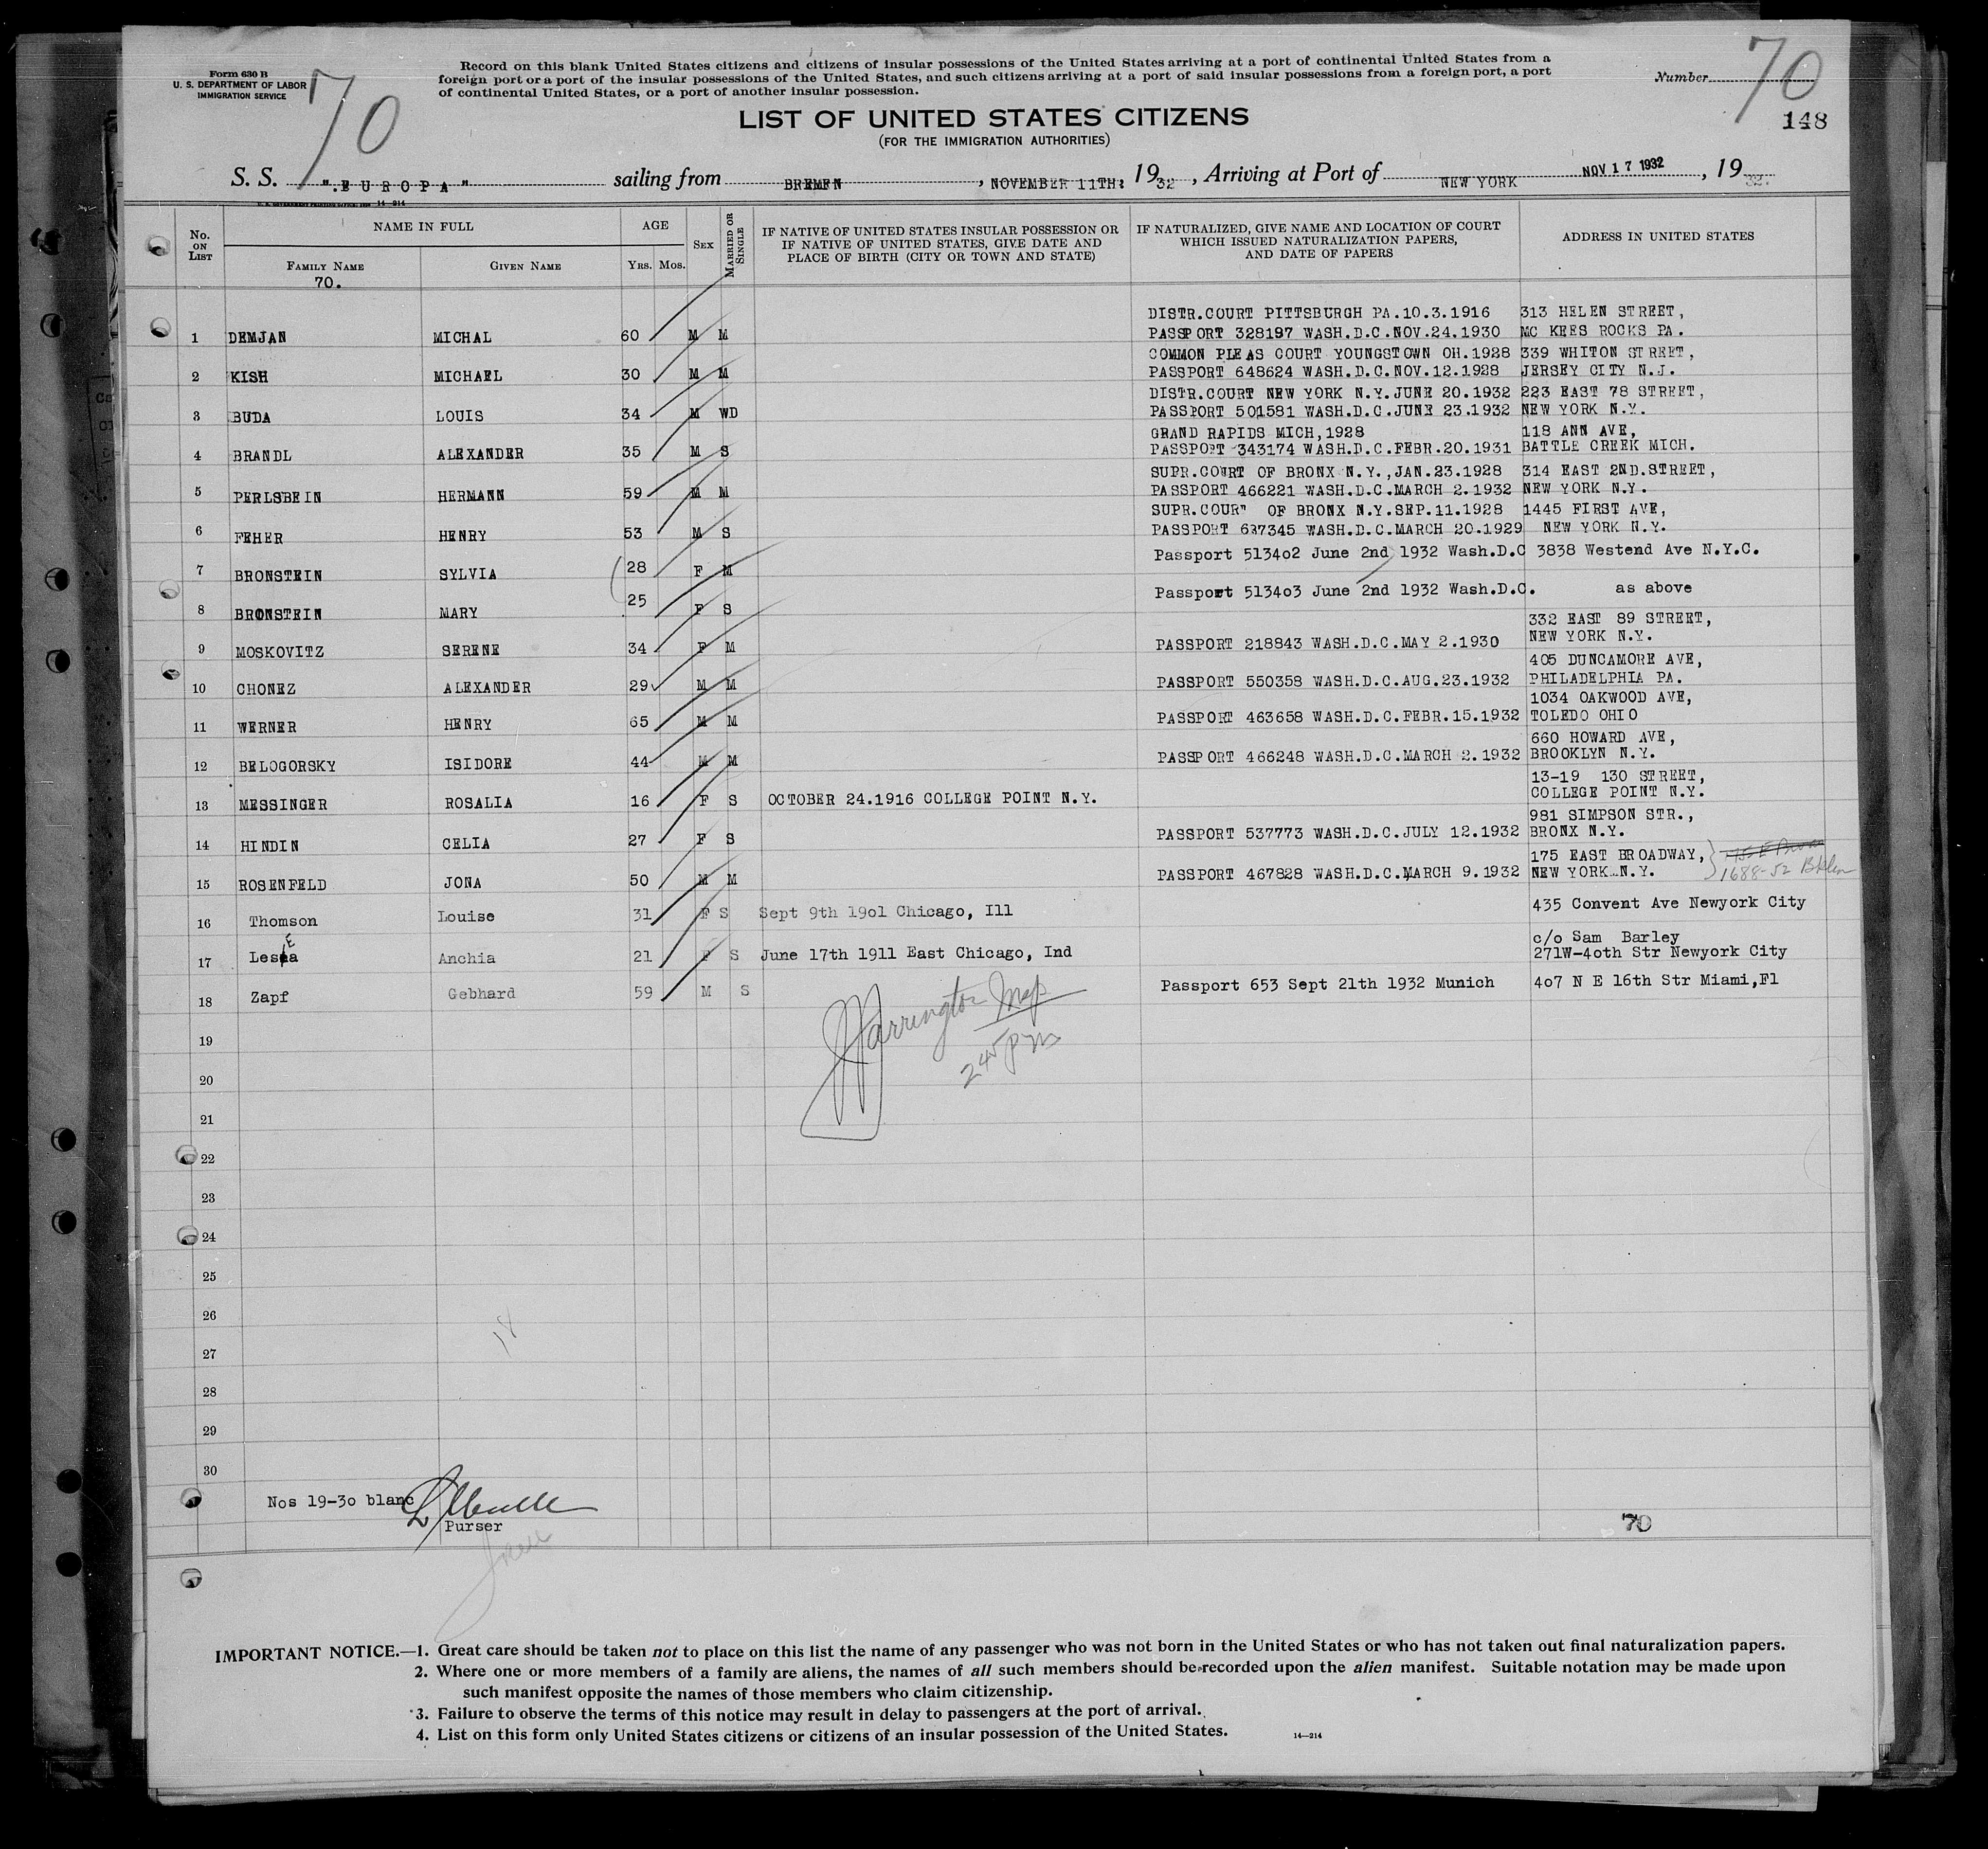 Form 630 B
U. S. DEPARTMENT OF LABOR
IMMIGRATION SERVICE
70
Record on this blank United States citizens and citizens of insular possessions of the United States arriving at a port of continental United States from a
foreign port or a port of the insular possessions of the United States, and such citizens arriving at a port of said insular possessions from a foreign port, a port
of continental United States, or a port of another insular possession.
Number 70
148
LIST OF UNITED STATES CITIZENS
(FOR THE IMMIGRATION AUTHORITIES)
S. S. ".EUROPA" sailing from BREMEN, NOVEMBER 11TH: 1932, Arriving at Port of NEW YORK NOV 17 1932, 1932.
No. ON LIST
NAME IN FULL
FAMILY NAME
70.
GIVEN NAME
AGE
YRS. MOS.
SEX
MARRIED OR SINGLE
IF NATIVE OF UNITED STATES INSULAR POSSESSION OR
IF NATIVE OF UNITED STATES, GIVE DATE AND
PLACE OF BIRTH (CITY OR TOWN AND STATE)
IF NATURALIZED, GIVE NAME AND LOCATION OF COURT
WHICH ISSUED NATURALIZATION PAPERS,
AND DATE OF PAPERS
ADDRESS IN UNITED STATES
DISTR.COURT PITTSBURGH PA.10.3.1916 313 HELEN STREET,
1 DEMJAN MICHAL 60 M M PASSPORT 328197 WASH.D.C.NOV.24.1930 MC KEES ROCKS PA.
COMMON PLEAS COURT YOUNGSTOWN OH.1928 339 WHITON STREET,
2 KISH MICHAEL 30 M M PASSPORT 648624 WASH.D.C.NOV.12.1928 JERSEY CITY N.J.
DISTR.COURT NEW YORK N.Y.JUNE 20.1932 223 EAST 78 STREET,
3 BUDA LOUIS 34 M WD PASSPORT 501581 WASH.D.C.JUNE 23.1932 NEW YORK N.Y.
GRAND RAPIDS MICH,1928 118 ANN AVE,
4 BRANDL ALEXANDER 35 M S PASSPORT 343174 WASH.D.C.FEBR.20.1931 BATTLE CREEK MICH.
SUPR.COURT OF BRONX N.Y.,JAN.23.1928 314 EAST 2ND.STREET,
5 PERLSBEIN HERMANN 59 M M PASSPORT 466221 WASH.D.C.MARCH 2.1932 NEW YORK N.Y.
SUPR.COURT OF BRONX N.Y.SEP.11.1928 1445 FIRST AVE,
6 FEHER HENRY 53 M S PASSPORT 637345 WASH.D.C.MARCH 20.1929 NEW YORK N.Y.
7 BRONSTEIN SYLVIA 28 F M Passport 5134o2 June 2nd 1932 Wash.D.C 3838 Westend Ave N.Y.C.
8 BRONSTEIN MARY 25 F S Passport 5134o3 June 2nd 1932 Wash.D.C. as above
332 EAST 89 STREET,
9 MOSKOVITZ SERENE 34 F M PASSPORT 218843 WASH.D.C.MAY 2.1930 NEW YORK N.Y.
405 DUNCAMORE AVE,
10 CHONEZ ALEXANDER 29 M M PASSPORT 550358 WASH.D.C.AUG.23.1932 PHILADELPHIA PA.
1034 OAKWOOD AVE,
11 WERNER HENRY 65 M M PASSPORT 463658 WASH.D.C.FEBR.15.1932 TOLEDO OHIO
660 HOWARD AVE,
12 BELOGORSKY ISIDORE 44 M M PASSPORT 466248 WASH.D.C.MARCH 2.1932 BROOKLYN N.Y.
13-19 130 STREET,
13 MESSINGER ROSALIA 16 F S OCTOBER 24.1916 COLLEGE POINT N.Y. COLLEGE POINT N.Y.
981 SIMPSON STR.,
14 HINDIN CELIA 27 F S PASSPORT 537773 WASH.D.C.JULY 12.1932 BRONX N.Y.
175 EAST BROADWAY,
15 ROSENFELD JONA 50 M M PASSPORT 467828 WASH.D.C.MARCH 9.1932 NEW YORK N.Y. 1688-52 Bklyn
16 Thomson Louise 31 F S Sept 9th 19o1 Chicago, Ill 435 Convent Ave Newyork City
c/o Sam Barley
17 Lesea Anchia 21 F S June 17th 1911 East Chicago, Ind 271W-4oth Str Newyork City
18 Zapf Gebhard 59 M S Passport 653 Sept 21th 1932 Munich 4o7 N E 16th Str Miami,Fl
Harrington Insp
2 45 pm
19
20
21
22
23
24
25
26
27
28
29
30
Nos 19-3o blanc
Purser
70
IMPORTANT NOTICE.—1. Great care should be taken not to place on this list the name of any passenger who was not born in the United States or who has not taken out final naturalization papers.
2. Where one or more members of a family are aliens, the names of all such members should be recorded upon the alien manifest. Suitable notation may be made upon
such manifest opposite the names of those members who claim citizenship.
3. Failure to observe the terms of this notice may result in delay to passengers at the port of arrival.
4. List on this form only United States citizens or citizens of an insular possession of the United States.
14—214